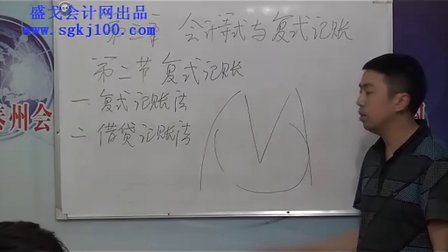 盛戈会计网出品
www.sgkj100.com
第二章 会计等式与复式记账
第二节 复式记账
一 复式记账法
二 借贷记账法
泰州会